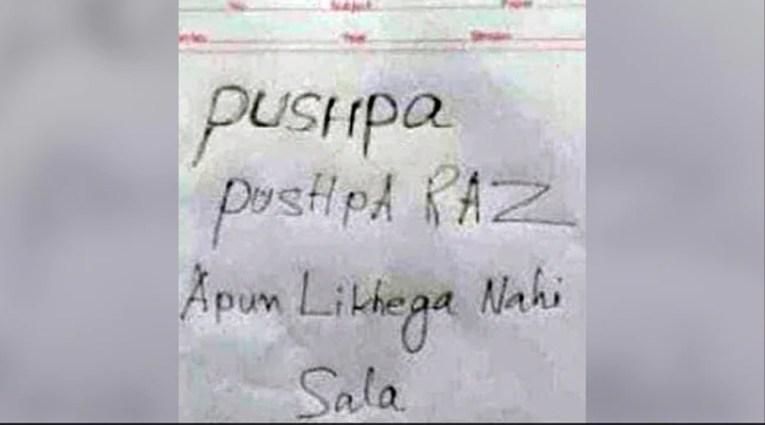 No. Subject Paper
pusHpa
pusHpA RAZ
Apun Likhega Nahi
Sala